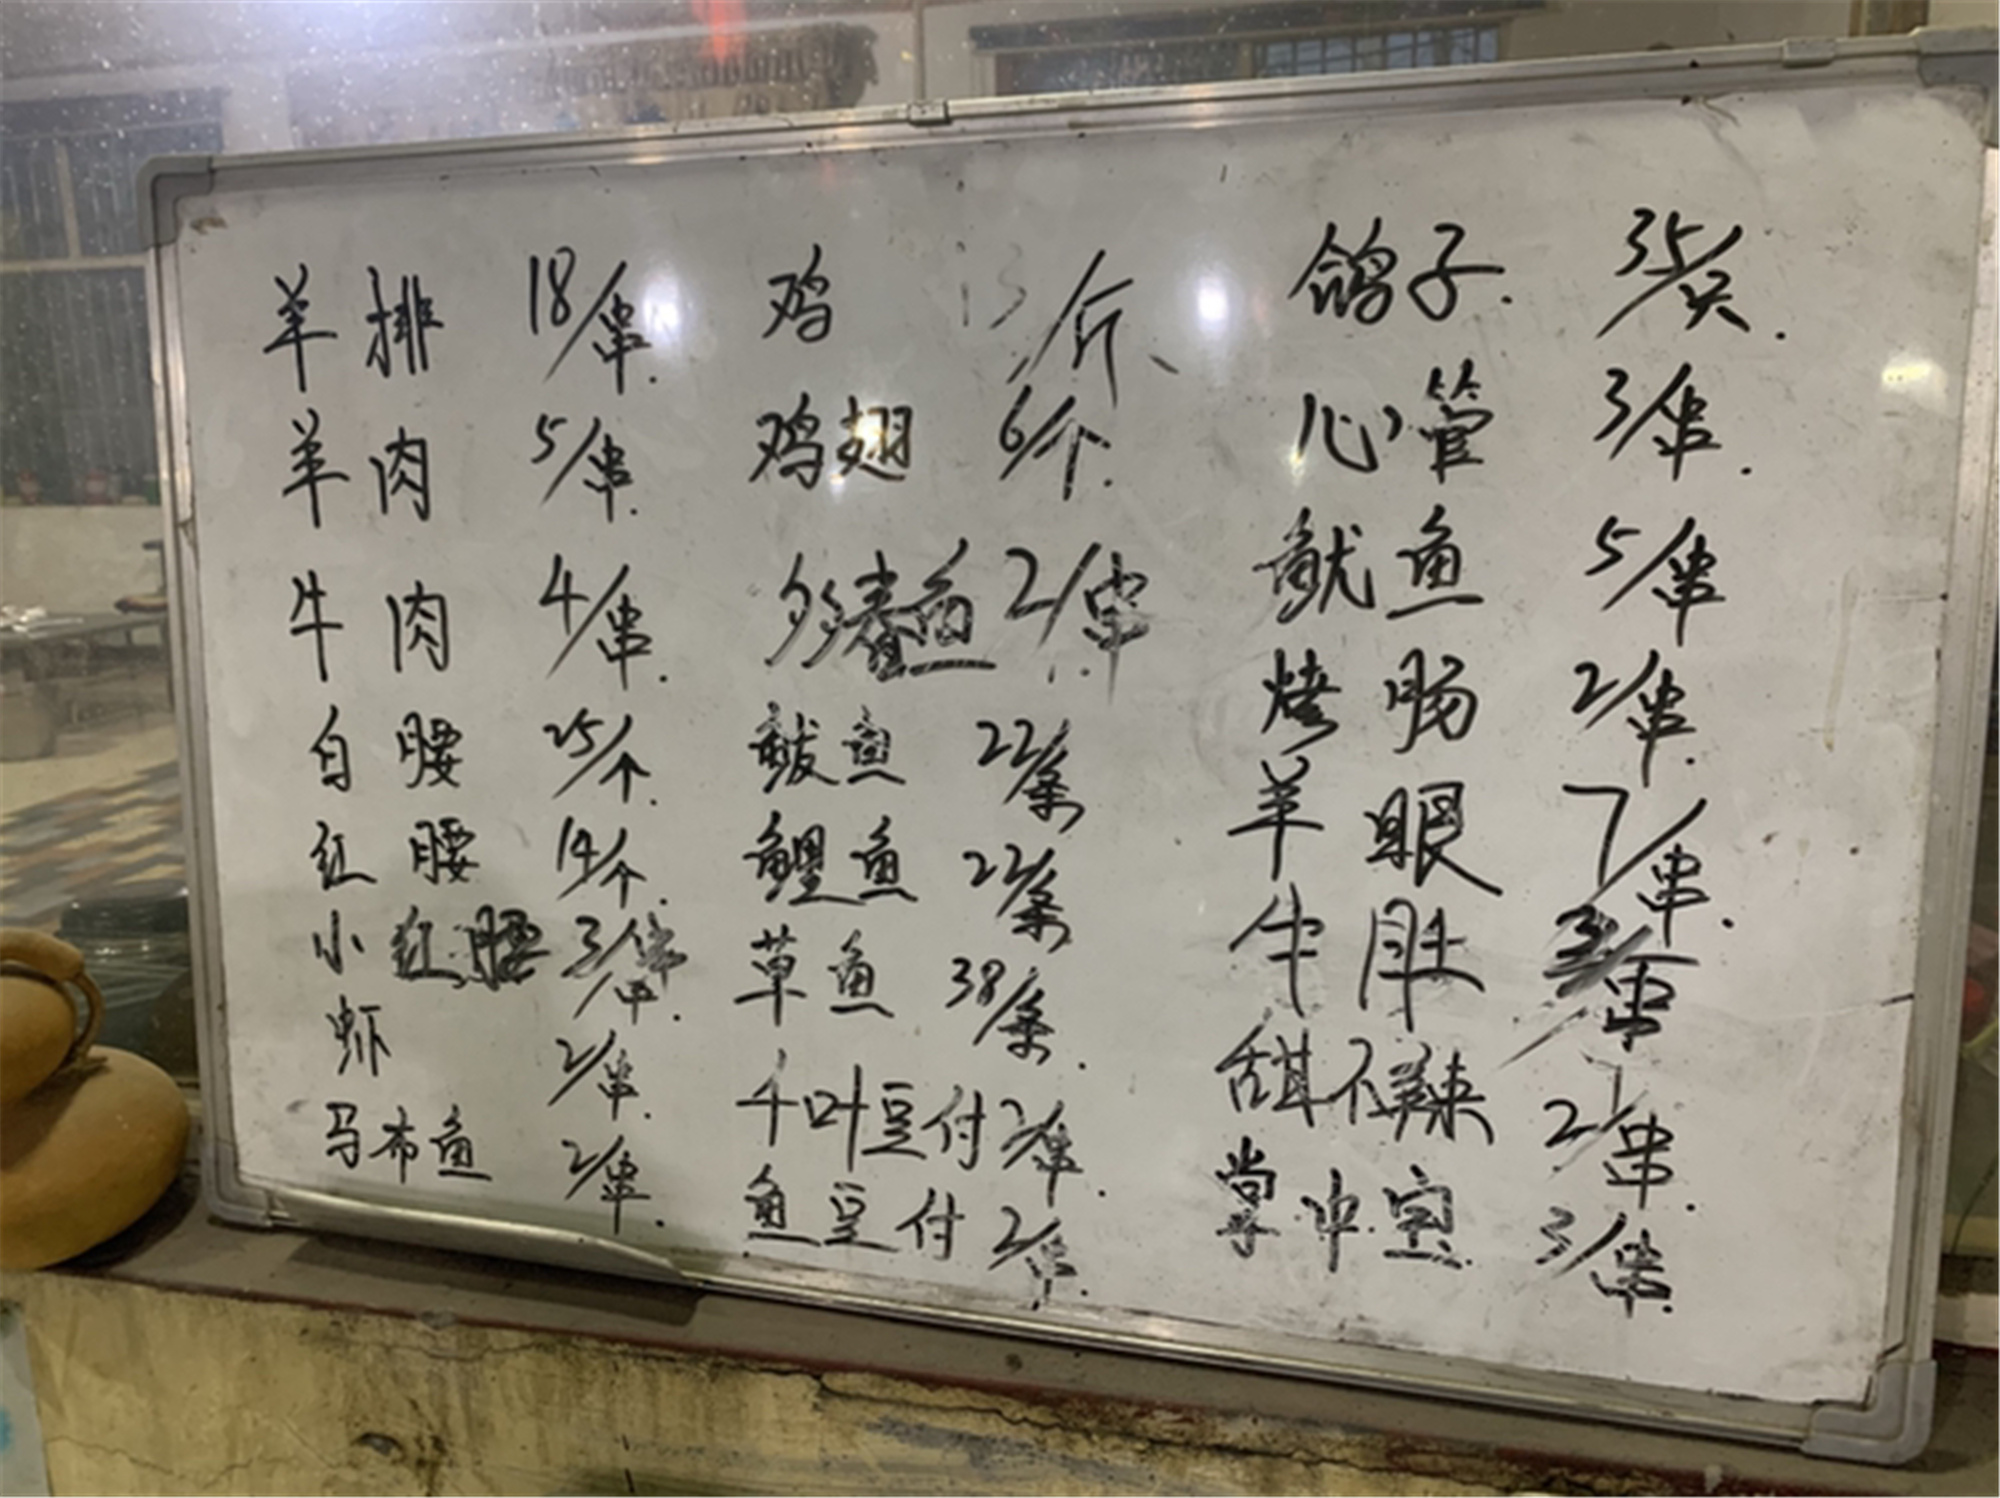 羊排 18/串.
羊肉 5/串.
牛肉 4/串.
白腰 25/个.
红腰 14/个.
小红腰 3/串.
虾 2/串.
马布鱼 2/串.
鸡 13/斤、
鸡翅 6/个.
多春鱼 2/串
鲅鱼 22/条
鲤鱼 22/条
草鱼 38/条.
千叶豆付 2/串.
鱼豆付 2/串.
鸽子. 35/只.
心管 3/串.
鱿鱼 5/串
烤肠 2/串.
羊眼 7/串.
牛肚 /串
甜不辣 2/串.
掌冲宝 3/串.